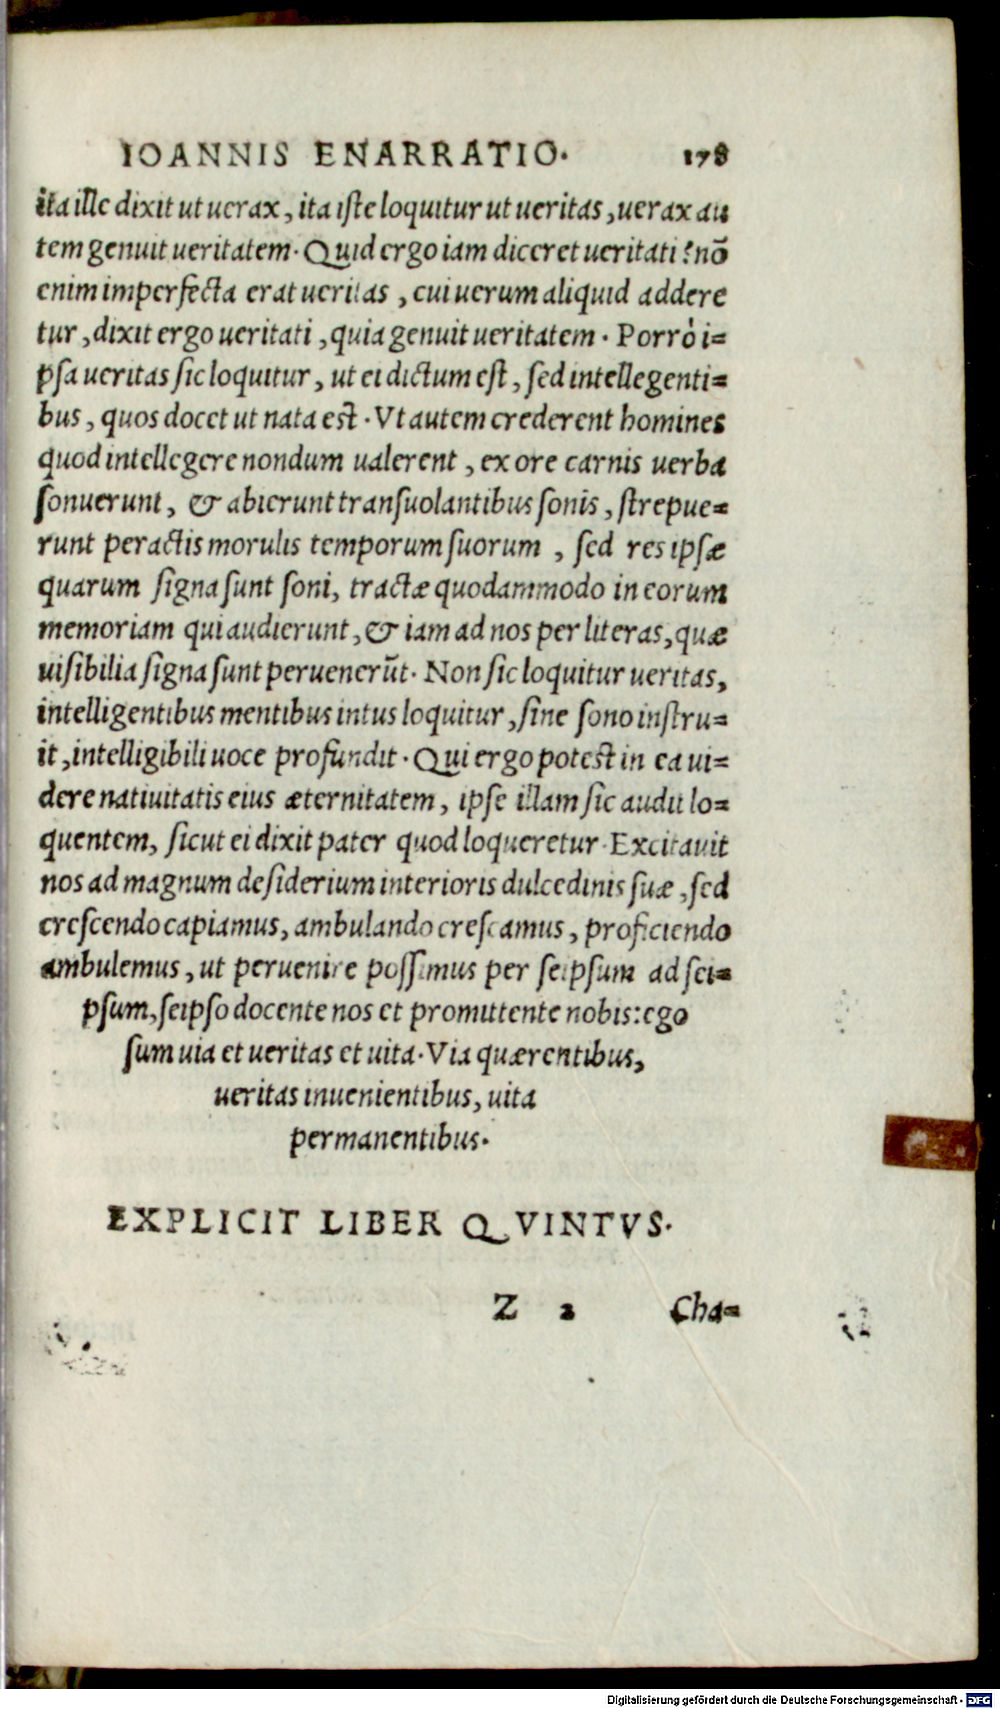 IOANNIS ENARRATIO. 178
ita ille dixit ut uerax, ita iste loquitur ut ueritas, uerax au
tem genuit ueritatem. Quid ergo iam diceret ueritati? nō
enim imperfecta erat ueritas, cui uerum aliquid addere
tur, dixit ergo ueritati, quia genuit ueritatem. Porrò i=
psa ueritas sic loquitur, ut ei dictum est, sed intellegenti=
bus, quos docet ut nata est. Vt autem crederent homines
quod intellegere nondum ualerent, ex ore carnis uerba
sonuerunt, & abierunt transuolantibus sonis, strepue=
runt peractis morulis temporum suorum, sed res ipsæ
quarum signa sunt soni, tractæ quodammodo in eorum
memoriam qui audierunt, & iam ad nos per literas, quæ
uisibilia signa sunt peruenerūt. Non sic loquitur ueritas,
intelligentibus mentibus intus loquitur, sine sono instru=
it, intelligibili uoce profundit. Qui ergo potest in ea ui=
dere natiuitatis eius æternitatem, ipse illam sic audit lo=
quentem, sicut ei dixit pater quod loqueretur. Excitauit
nos ad magnum desiderium interioris dulcedinis suæ, sed
crescendo capiamus, ambulando crescamus, proficiendo
ambulemus, ut peruenire possimus per seipsum ad sei=
psum, seipso docente nos et promittente nobis: ego
sum uia et ueritas et uita. Via quærentibus,
ueritas inuenientibus, uita
permanentibus.
EXPLICIT LIBER QVINTVS.
Z 2 Cha=
Digitalisierung gefördert durch die Deutsche Forschungsgemeinschaft - DFG